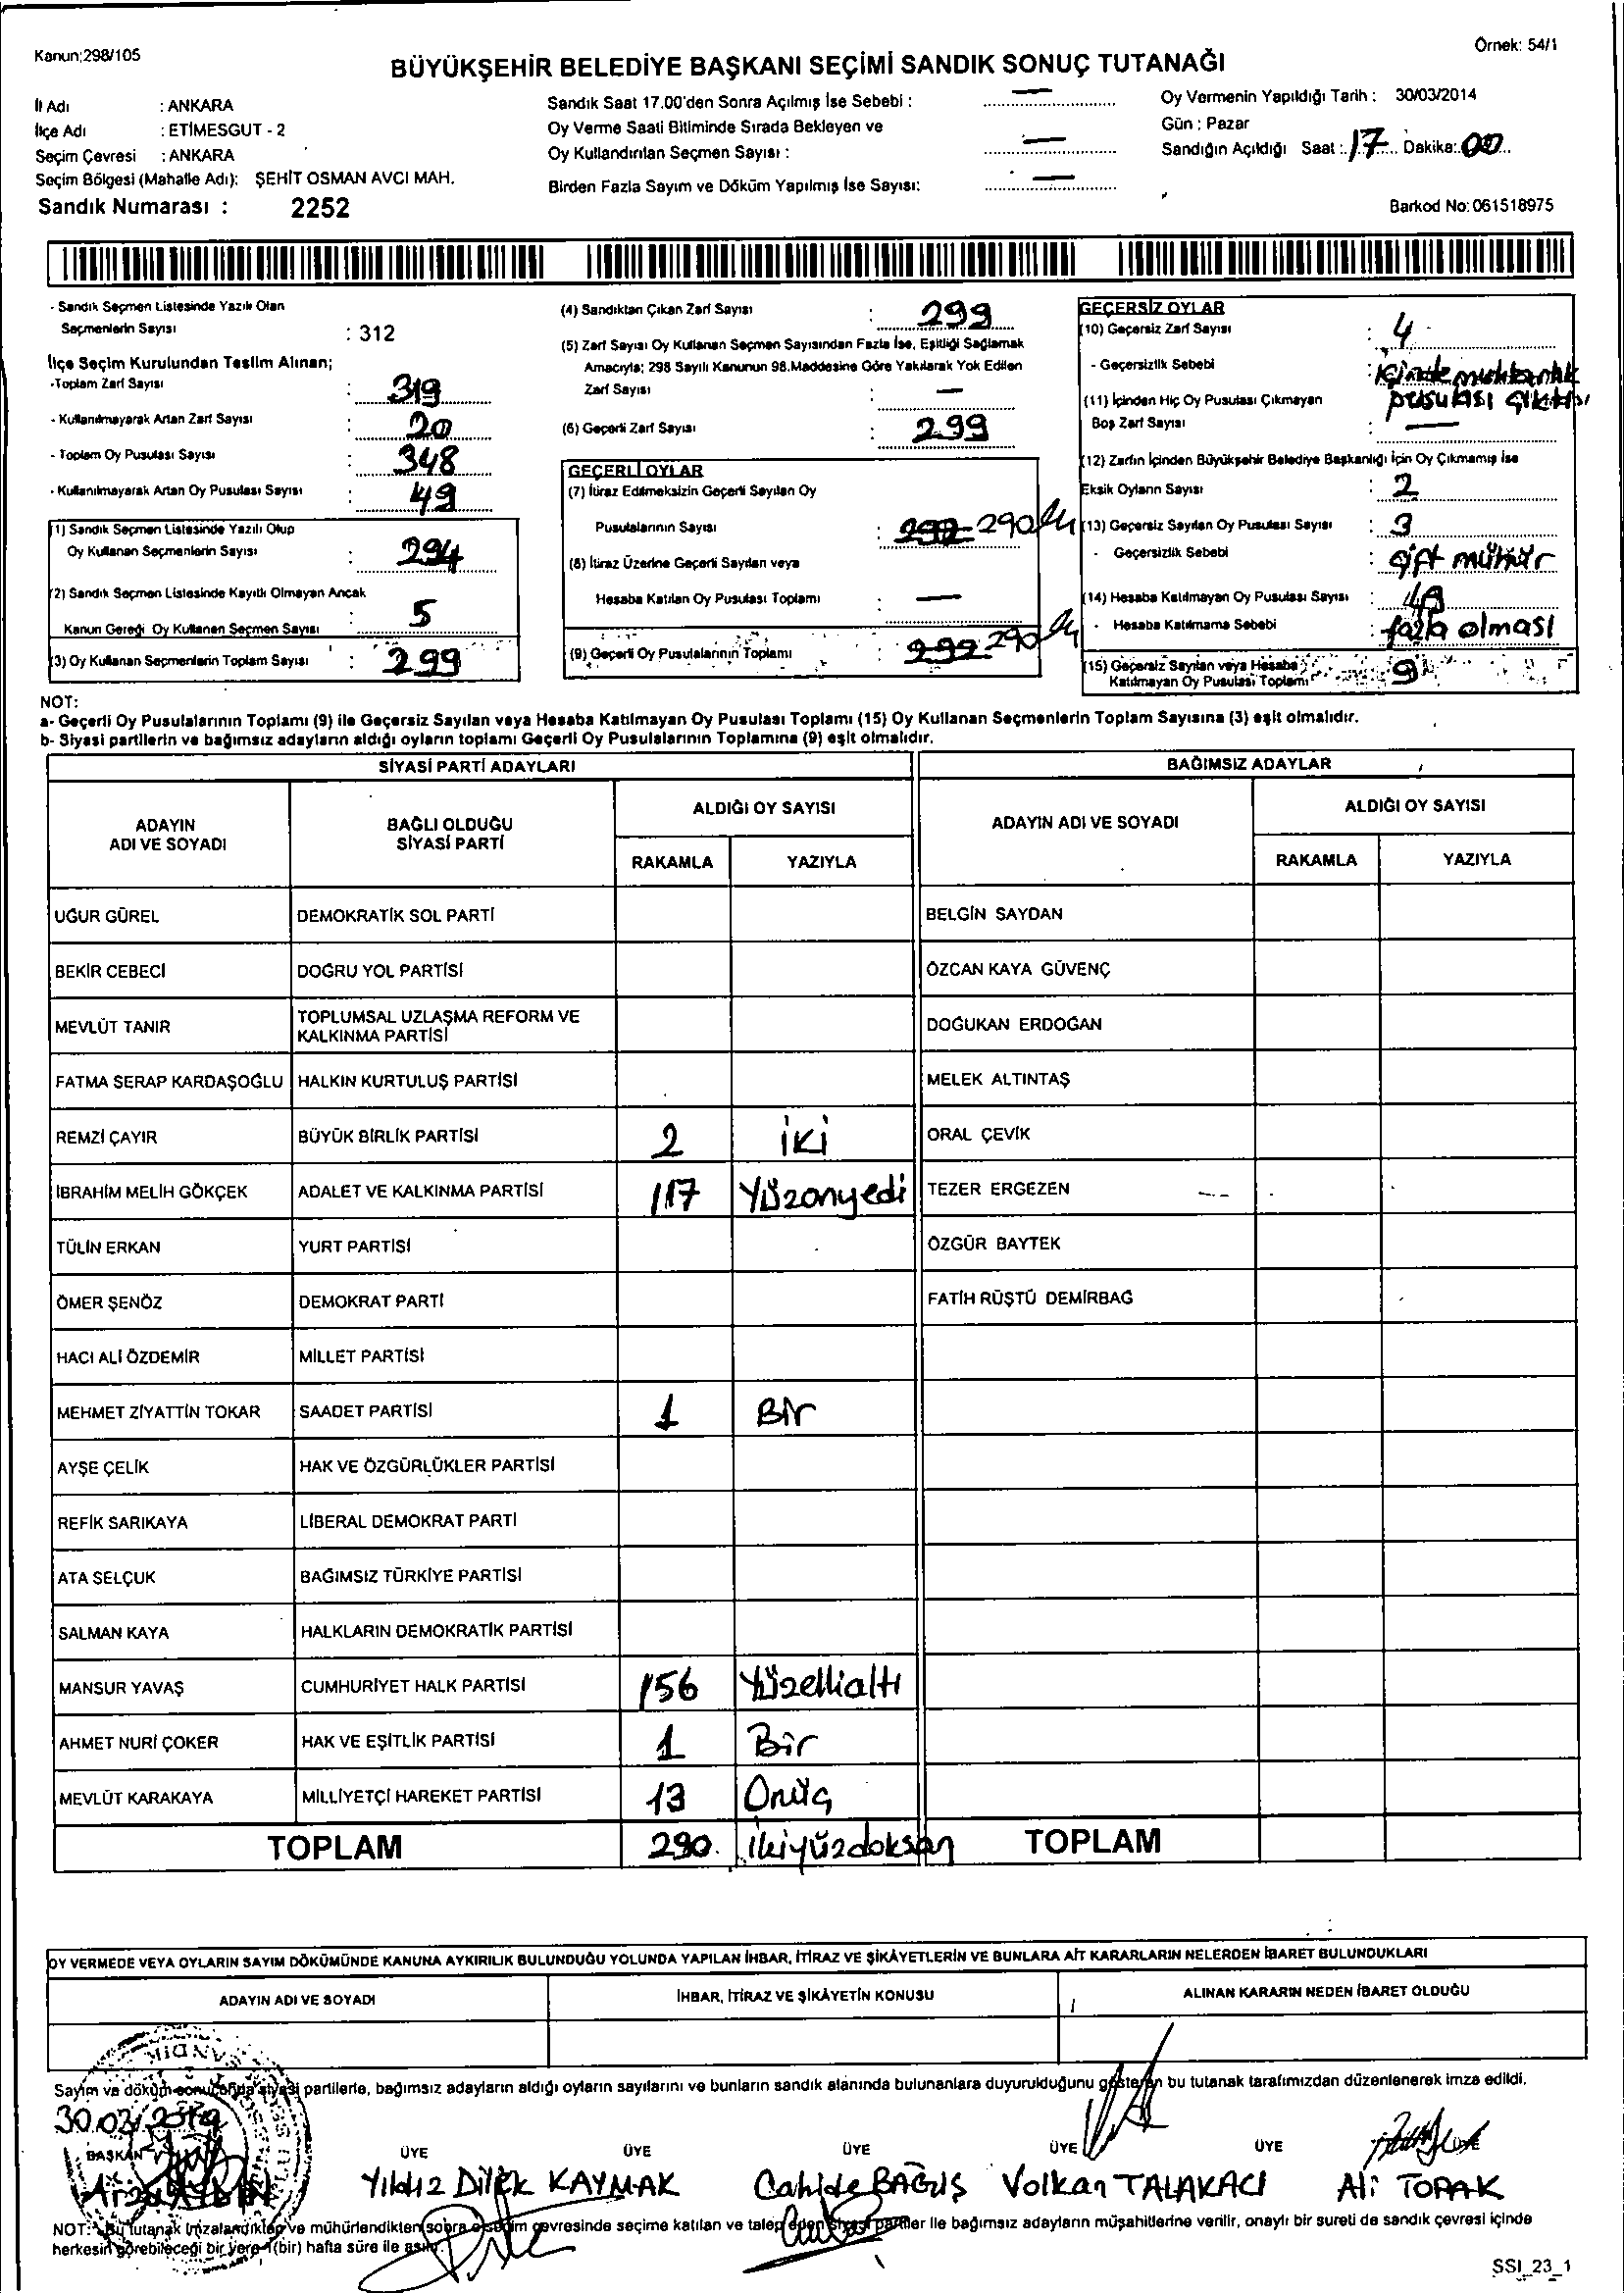 Kanun;298/105
Örnek: 54/1
BÜYÜKŞEHİR BELEDİYE BAŞKANI SEÇİMİ SANDIK SONUÇ TUTANAĞI
İl Adı : ANKARA
İlçe Adı : ETİMESGUT - 2
Seçim Çevresi : ANKARA
Seçim Bölgesi (Mahalle Adı): ŞEHİT OSMAN AVCI MAH.
Sandık Numarası : 2252
Sandık Saat 17.00'den Sonra Açılmış İse Sebebi : —
Oy Verme Saati Bitiminde Sırada Bekleyen ve
Oy Kullandırılan Seçmen Sayısı : —
Birden Fazla Sayım ve Döküm Yapılmış İse Sayısı: —
Oy Vermenin Yapıldığı Tarih : 30/03/2014
Gün : Pazar
Sandığın Açıldığı Saat : 17 Dakika: 00
Barkod No: 061518975
- Sandık Seçmen Listesinde Yazılı Olan
Seçmenlerin Sayısı : 312
İlçe Seçim Kurulundan Teslim Alınan;
-Toplam Zarf Sayısı : 319
- Kullanılmayarak Artan Zarf Sayısı : 20
- Toplam Oy Pusulası Sayısı : 348
- Kullanılmayarak Artan Oy Pusulası Sayısı : 49
(1) Sandık Seçmen Listesinde Yazılı Olup
Oy Kullanan Seçmenlerin Sayısı : 294
(2) Sandık Seçmen Listesinde Kayıtlı Olmayan Ancak
Kanun Gereği Oy Kullanan Seçmen Sayısı : 5
(3) Oy Kullanan Seçmenlerin Toplam Sayısı : 299
(4) Sandıktan Çıkan Zarf Sayısı : 299
(5) Zarf Sayısı Oy Kullanan Seçmen Sayısından Fazla İse, Eşitliği Sağlamak
Amacıyla; 298 Sayılı Kanunun 98.Maddesine Göre Yakılarak Yok Edilen
Zarf Sayısı : —
(6) Geçerli Zarf Sayısı : 299
GEÇERLİ OYLAR
(7) İtiraz Edilmeksizin Geçerli Sayılan Oy
Pusulalarının Sayısı : 292 290
(8) İtiraz Üzerine Geçerli Sayılan veya
Hesaba Katılan Oy Pusulası Toplamı : —
(9) Geçerli Oy Pusulalarının Toplamı : 292 290
GEÇERSİZ OYLAR
(10) Geçersiz Zarf Sayısı : 4
- Geçersizlik Sebebi : içinde muhtarlık
pusulası çıktısı
(11) İçinden Hiç Oy Pusulası Çıkmayan
Boş Zarf Sayısı : —
(12) Zarfın İçinden Büyükşehir Belediye Başkanlığı İçin Oy Çıkmamış İse
Eksik Oyların Sayısı : 2
(13) Geçersiz Sayılan Oy Pusulası Sayısı : 3
- Geçersizlik Sebebi : çift mühür
(14) Hesaba Katılmayan Oy Pusulası Sayısı :
- Hesaba Katılmama Sebebi : fazla olması
(15) Geçersiz Sayılan veya Hesaba
Katılmayan Oy Pusulası Toplamı : 9
NOT:
a- Geçerli Oy Pusulalarının Toplamı (9) ile Geçersiz Sayılan veya Hesaba Katılmayan Oy Pusulası Toplamı (15) Oy Kullanan Seçmenlerin Toplam Sayısına (3) eşit olmalıdır.
b- Siyasi partilerin ve bağımsız adayların aldığı oyların toplamı Geçerli Oy Pusulalarının Toplamına (9) eşit olmalıdır.
SİYASİ PARTİ ADAYLARI
BAĞIMSIZ ADAYLAR
ADAYIN ADI VE SOYADI
BAĞLI OLDUĞU SİYASİ PARTİ
ALDIĞI OY SAYISI
RAKAMLA YAZIYLA
ADAYIN ADI VE SOYADI
ALDIĞI OY SAYISI
RAKAMLA YAZIYLA
UĞUR GÜREL DEMOKRATİK SOL PARTİ BELGİN SAYDAN
BEKİR CEBECİ DOĞRU YOL PARTİSİ ÖZCAN KAYA GÜVENÇ
MEVLÜT TANIR TOPLUMSAL UZLAŞMA REFORM VE KALKINMA PARTİSİ DOĞUKAN ERDOĞAN
FATMA SERAP KARDAŞOĞLU HALKIN KURTULUŞ PARTİSİ MELEK ALTINTAŞ
REMZİ ÇAYIR BÜYÜK BİRLİK PARTİSİ 2 iki ORAL ÇEVİK
İBRAHİM MELİH GÖKÇEK ADALET VE KALKINMA PARTİSİ 117 Yüzonyedi TEZER ERGEZEN
TÜLİN ERKAN YURT PARTİSİ ÖZGÜR BAYTEK
ÖMER ŞENÖZ DEMOKRAT PARTİ FATİH RÜŞTÜ DEMİRBAĞ
HACI ALİ ÖZDEMİR MİLLET PARTİSİ
MEHMET ZİYATTİN TOKAR SAADET PARTİSİ 1 Bir
AYŞE ÇELİK HAK VE ÖZGÜRLÜKLER PARTİSİ
REFİK SARIKAYA LİBERAL DEMOKRAT PARTİ
ATA SELÇUK BAĞIMSIZ TÜRKİYE PARTİSİ
SALMAN KAYA HALKLARIN DEMOKRATİK PARTİSİ
MANSUR YAVAŞ CUMHURİYET HALK PARTİSİ 156 Yüzellialtı
AHMET NURİ ÇOKER HAK VE EŞİTLİK PARTİSİ 1 Bir
MEVLÜT KARAKAYA MİLLİYETÇİ HAREKET PARTİSİ 13 Onüç
TOPLAM 290. ikiyüzdoksan TOPLAM
OY VERMEDE VEYA OYLARIN SAYIM DÖKÜMÜNDE KANUNA AYKIRILIK BULUNDUĞU YOLUNDA YAPILAN İHBAR, İTİRAZ VE ŞİKÂYETLERİN VE BUNLARA AİT KARARLARIN NELERDEN İBARET BULUNDUKLARI
ADAYIN ADI VE SOYADI İHBAR, İTİRAZ VE ŞİKÂYETİN KONUSU ALINAN KARARIN NEDEN İBARET OLDUĞU
Sayım ve döküm sonucunda siyasi partilerle, bağımsız adayların aldığı oyların sayılarını ve bunların sandık alanında bulunanlara duyurulduğunu gösteren bu tutanak tarafımızdan düzenlenerek imza edildi.
30.03.2014
BAŞKAN ÜYE ÜYE ÜYE ÜYE ÜYE ÜYE
Yıldız Dilek KAYMAK Cahide BAĞIŞ Volkan TALAKACI Ali TOPAK
NOT: Bu tutanak imzalandıktan ve mühürlendikten sonra o seçim çevresinde seçime katılan ve talep eden siyasi partiler ile bağımsız adayların müşahitlerine verilir, onaylı bir sureti de sandık çevresi içinde
herkesin görebileceği bir yere 1 (bir) hafta süre ile asılır.
SSI_23_1